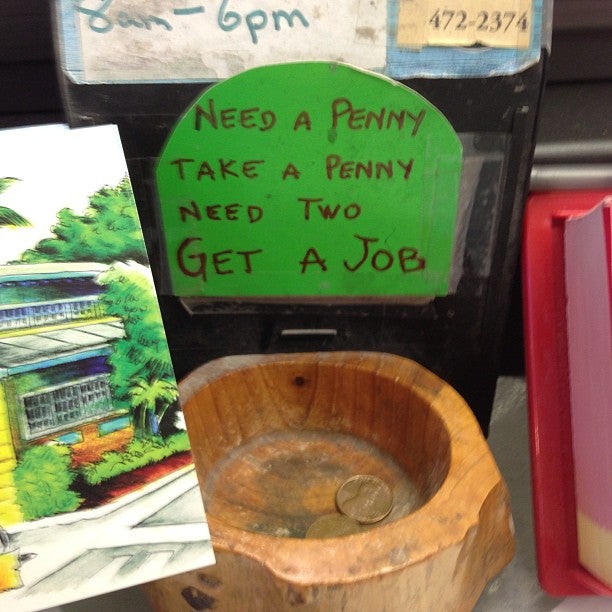 8am-6pm
472-2374
NEED A PENNY
TAKE A PENNY
NEED TWO
GET A JOB